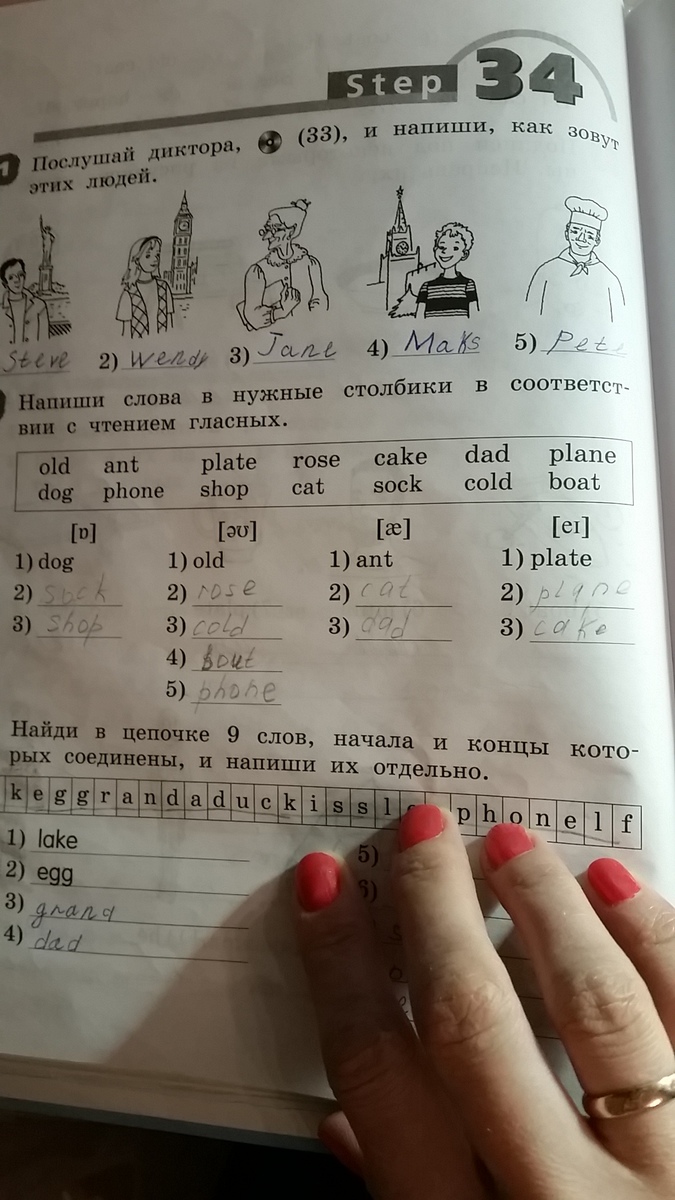 Step 34
1 Послушай диктора, (33), и напиши, как зовут
этих людей.
Steve 2) Wendy 3) Jane 4) Maks 5) Pete
Напиши слова в нужные столбики в соответст-
вии с чтением гласных.
old ant plate rose cake dad plane
dog phone shop cat sock cold boat
[ɒ] [əʊ] [æ] [eɪ]
1) dog 1) old 1) ant 1) plate
2) sock 2) rose 2) cat 2) plane
3) shop 3) cold 3) dad 3) cake
4) bout
5) phone
Найди в цепочке 9 слов, начала и концы кото-
рых соединены, и напиши их отдельно.
k e g g r a n d a d u c k i s s l p h o n e l f
1) lake 5)
2) egg 6)
3) grand
4) dad